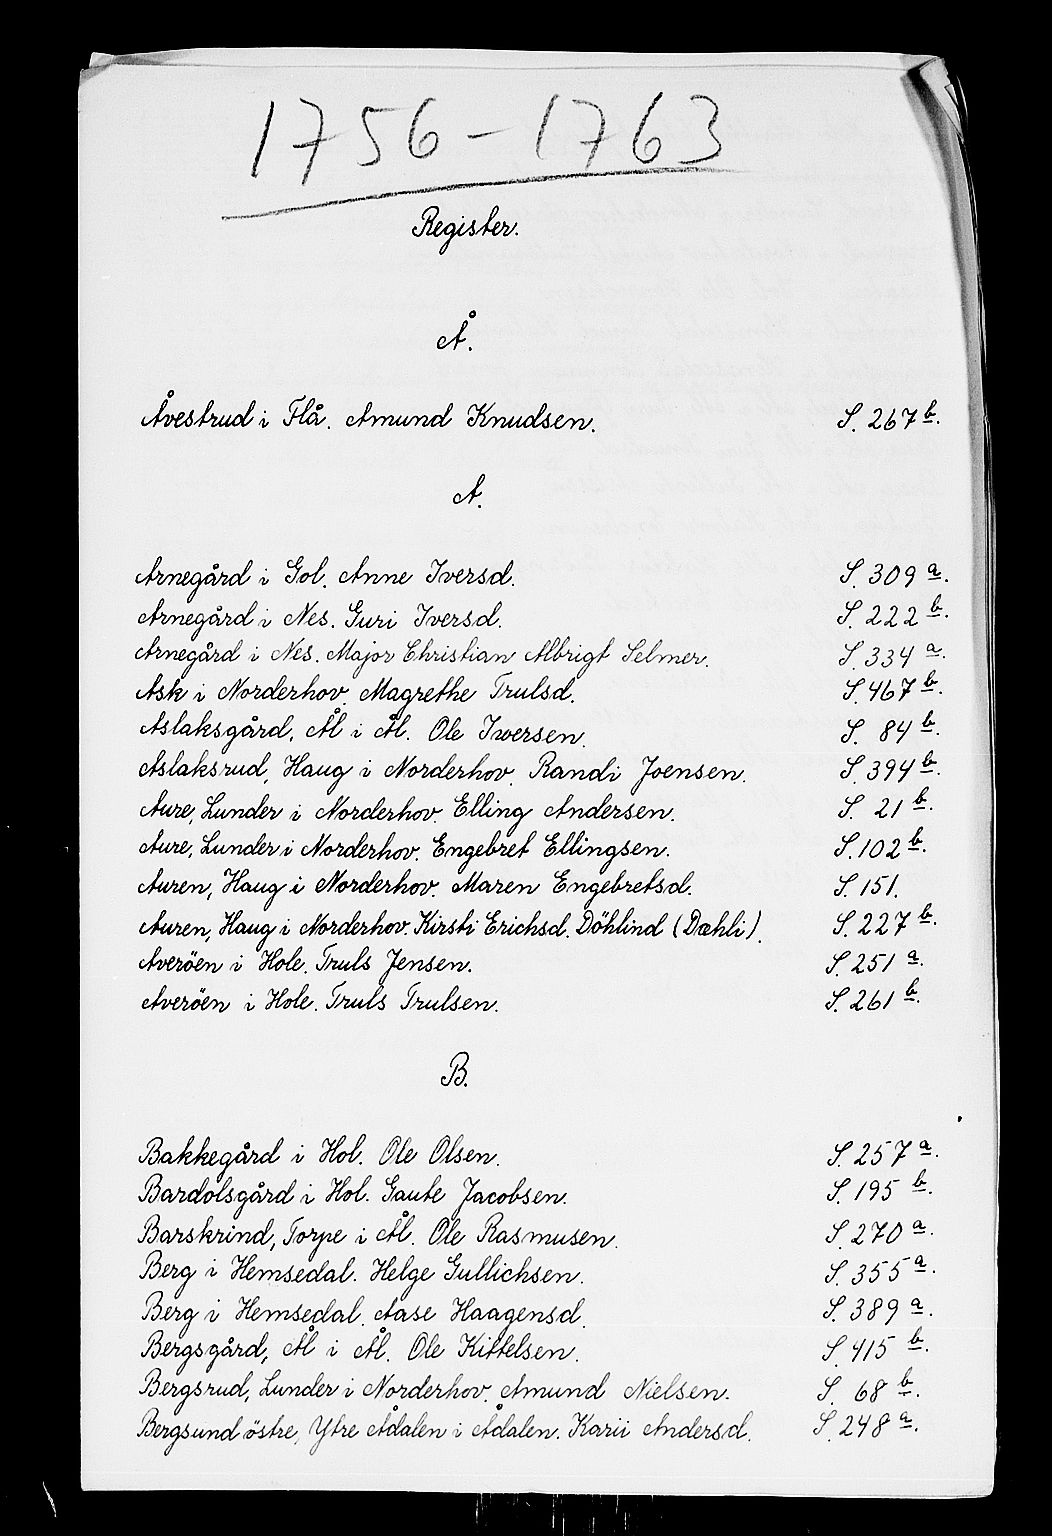 1756-1763
Register.
Å.
Åvestrud i Flå. Amund Knudsen. S. 267 b.
A.
Arnegård i Gol. Anne Iversd. S. 309 a.
Arnegård i Nes. Guri Iversd. S. 222 b.
Arnegård i Nes. Major Christian Albrigt Selmer. S. 334 a.
Ask i Norderhov. Magrethe Trulsd. S. 467 b.
Aslaksgård, Ål i Ål. Ole Iwersen. S. 84 b.
Aslaksrud, Haug i Norderhov. Randi Joensen. S. 394 b.
Aure, Lunder i Norderhov. Elling Andersen. S. 21 b.
Aure, Lunder i Norderhov. Engebret Ellingsen. S. 102 b.
Auren, Haug i Norderhov. Maren Engebretsd. S. 151.
Auren, Haug i Norderhov. Kirsti Erichsd. Döhlind (Dæhli). S. 227 b.
Averöen i Hole. Truls Jensen. S. 251 a.
Averöen i Hole. Truls Trulsen. S. 261 b.
B.
Bakkegård i Hol. Ole Olsen. S. 257 a.
Bardolsgård i Hol. Gaute Jacobsen. S. 195 b.
Barskrind, Torpe i Ål. Ole Rasmusen. S. 270 a.
Berg i Hemsedal. Helge Gullichsen. S. 355 a.
Berg i Hemsedal. Aase Haagensd. S. 389 a.
Bergsgård, Ål i Ål. Ole Kittelsen. S. 415 b.
Bergsrud, Lunder i Norderhov. Amund Nielsen. S. 68 b.
Bergsund östre, Ytre Ådalen i Ådalen. Karii Andersd. S. 248 a.